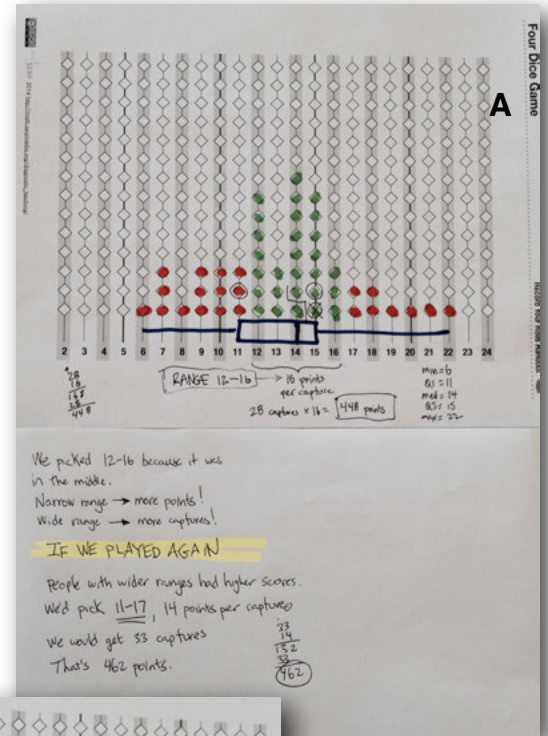 Four Dice Game
A
2 3 4 5 6 7 8 9 10 11 12 13 14 15 16 17 18 19 20 21 22 23 24
28
16
168
28
448
RANGE 12-16 → 16 points
per capture
28 captures x 16 = 448 points
min = 6
Q1 = 11
med = 14
Q3 = 15
max = 22
We picked 12-16 because it was
in the middle.
Narrow range → more points!
Wide range → more captures!
IF WE PLAYED AGAIN
People with wider ranges had higher scores.
We'd pick 11-17, 14 points per capture
We would get 33 captures
That's 462 points.
33
14
132
33
462